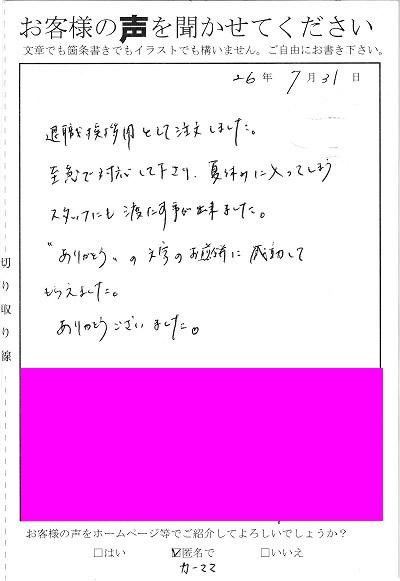 お客様の声を聞かせてください
文章でも箇条書きでもイラストでも構いません。ご自由にお書き下さい。
26年 7月31日
退職挨拶用として注文しました。
至急で対応して下さり、夏休みに入ってしまう
スタッフにも渡す事が出来ました。
"ありがとう"の文字のお煎餅に感動して
もらえました。
ありがとうございました。
切り取り線
お客様の声をホームページ等でご紹介してよろしいでしょうか？
□はい ☑匿名で □いいえ